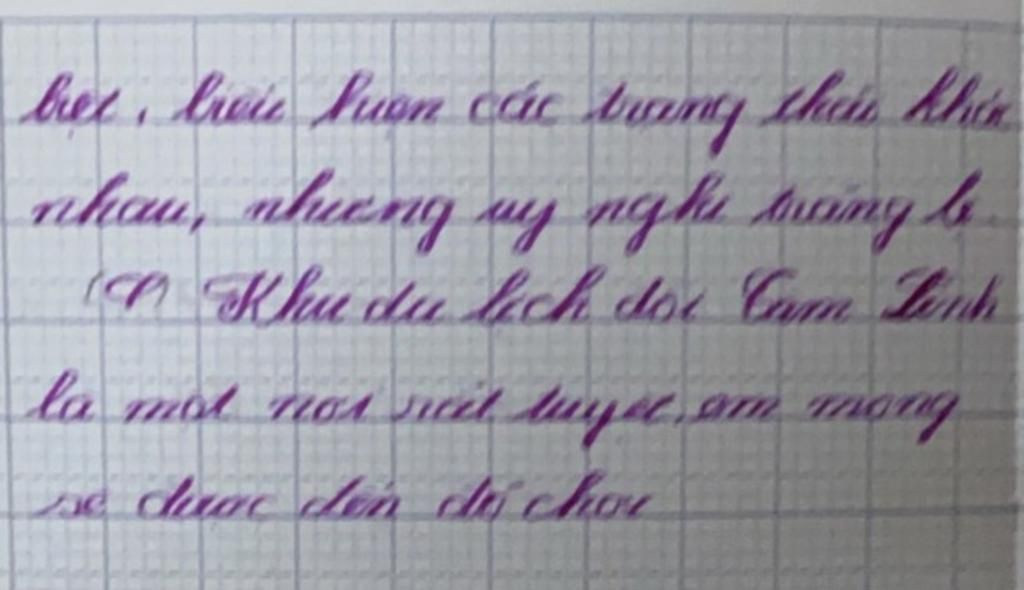 biệt, biểu hiện các tượng thái khác
nhau, nhưng uy nghi tráng lệ.
(7) Khu du lịch đồi Cam Lĩnh
là một nơi rất tuyệt, em mong
sẽ được đến đó chơi